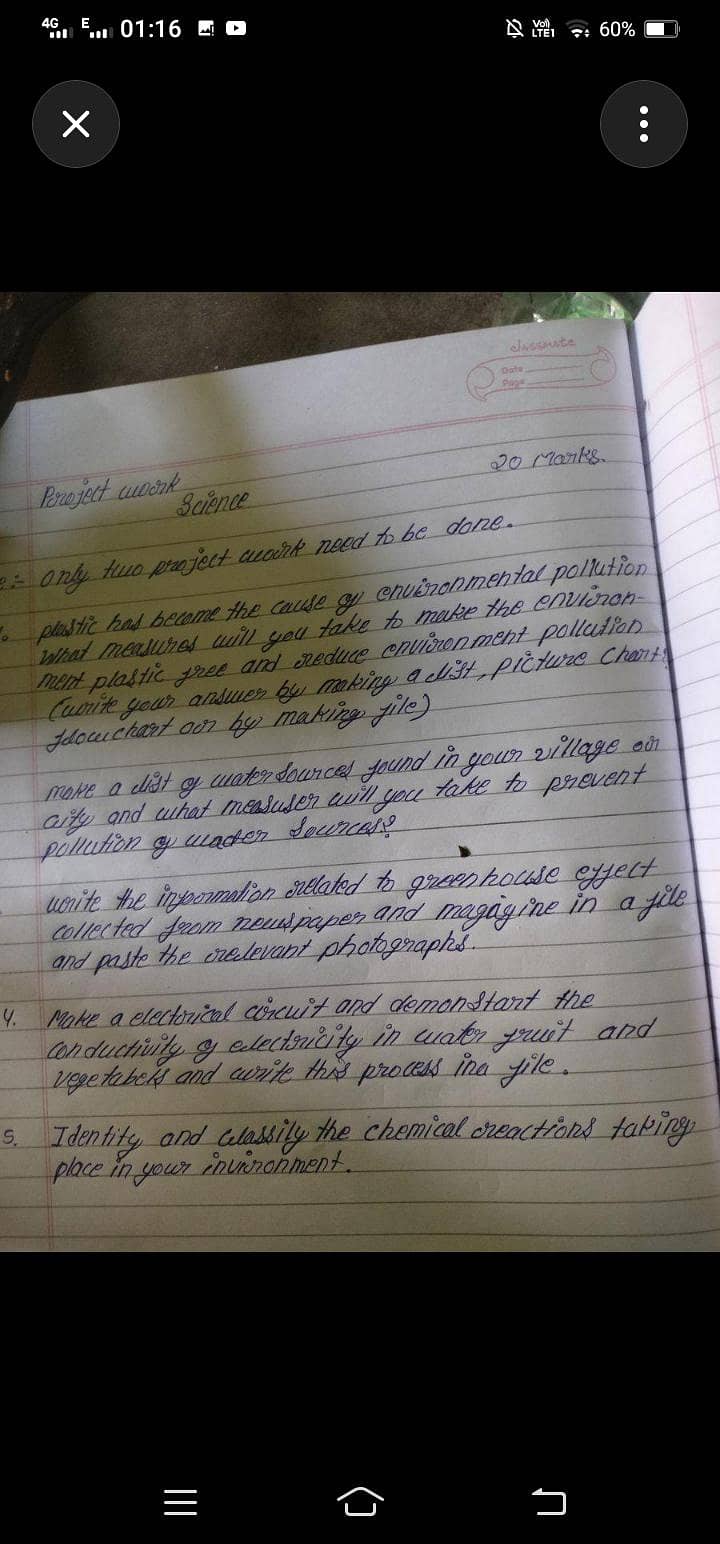 4G E 01:16 Vo)) LTE1 60%
classmate
Date
Page
20 Marks.
Project work
Science
only two project work need to be done.
plastic has become the cause of environmental pollution
What measures will you take to make the environ-
ment plastic free and reduce environment pollution
(write your answer by making a list, picture Chart,
flowchart or by making file)
make a list of water sources found in your village or
city and what measuser will you take to prevent
pollution of water sources?
write the information related to greenhouse effect
collected from newspaper and magazine in a file
and paste the relevant photographs.
4. Make a electrical circuit and demonstart the
conductivity of electricity in water fruit and
vegetabels and write this process ina file.
5. Identity and classily the chemical reactions taking
place in your invironment.